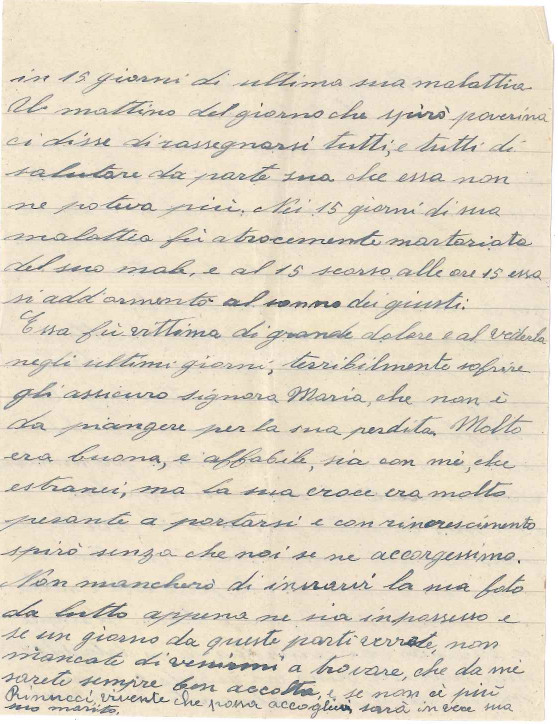 in 15 giorni di ultima sua malattia
Il mattino del giorno che spirò poverina
ci disse di rassegnarsi tutti, e tutti di
salutare da parte sua che essa non
ne poteva più. Nei 15 giorni di sua
malattia fù atrocemente martoriata
del suo male, e al 15 scorso, alle ore 15 essa
si add'ormentò al sonno dei giusti.
Essa fù vittima di grande dolore e al vederla
negli ultimi giorni, terribilmente sofrire
gli assicuro signora Maria, che non è
da piangere per la sua perdita. Molto
era buona, e affabile, sia con mè, che
estranei, ma la sua croce era molto
pesante a portarsi e con rincrescimento
spirò senza che noi se ne accorgessimo.
Non mancherò di inviarvi la sua foto
da lutto appena ne sia inpossesso e
se un giorno da queste parti verrete, non
mancate di venirmi a trovare, che da mè
sarete sempre ben accolta, e se non ci più
Rinucci, vivente che possa accoglierv, sarà in vece sua
suo marito.